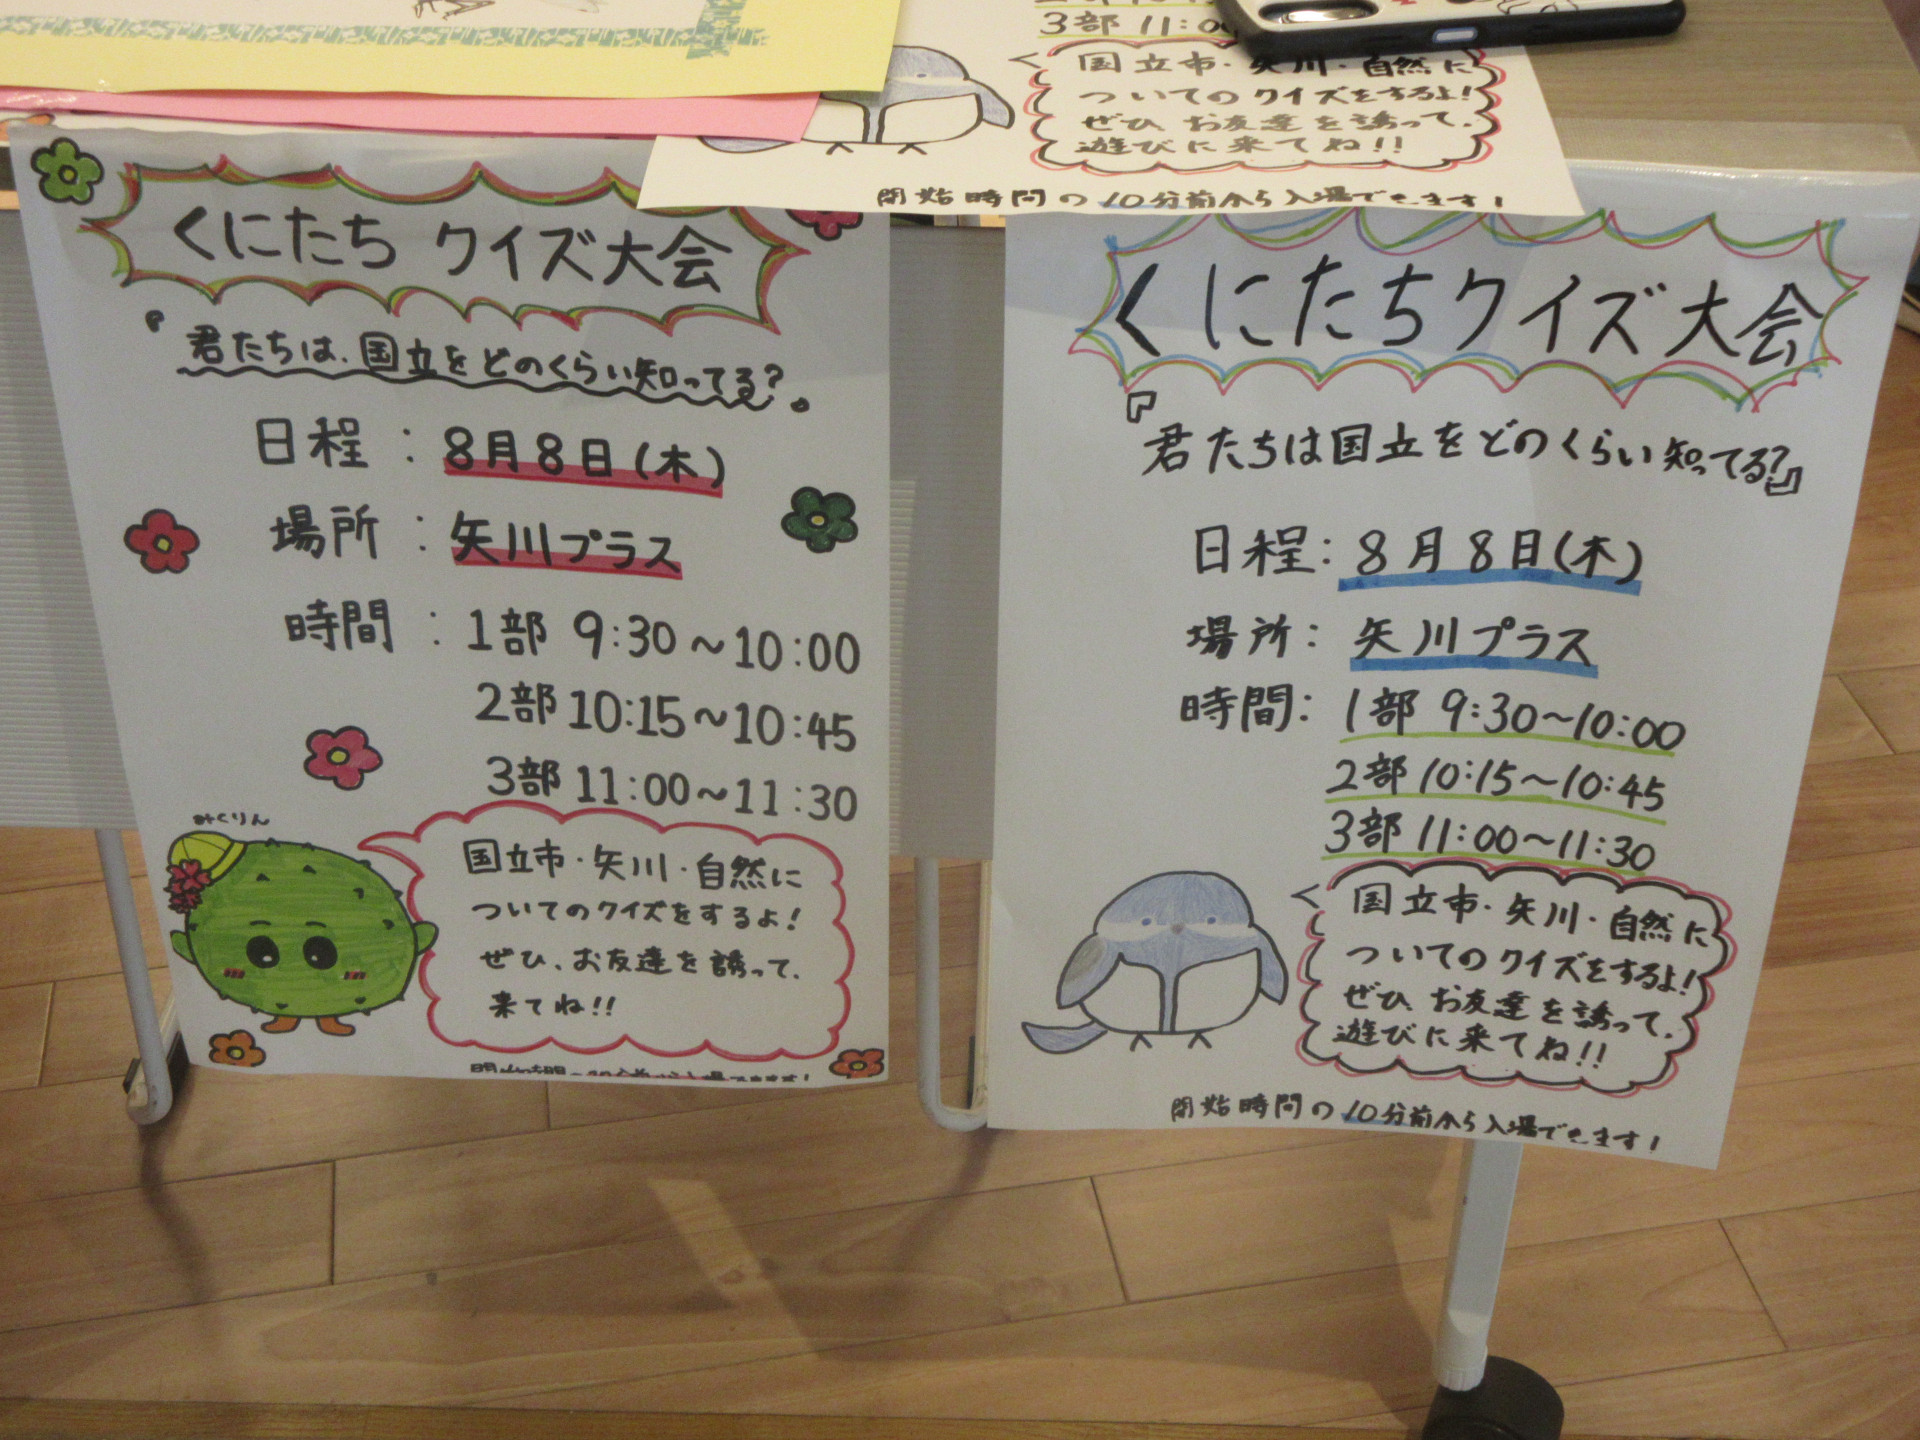 3部 11:00
国立市・矢川・自然に
ついてのクイズをするよ!
ぜひ、お友達を誘って、
遊びに来てね!!
開始時間の10分前から入場できます!
くにたち クイズ大会
『君たちは、国立をどのくらい知ってる?』
日程:8月8日(木)
場所:矢川プラス
時間:1部 9:30~10:00
2部 10:15~10:45
3部 11:00~11:30
国立市・矢川・自然に
ついてのクイズをするよ!
ぜひ、お友達を誘って、
来てね!!
くにたちクイズ大会
『君たちは国立をどのくらい知ってる?』
日程:8月8日(木)
場所:矢川プラス
時間:1部 9:30~10:00
2部 10:15~10:45
3部 11:00~11:30
国立市・矢川・自然に
ついてのクイズをするよ!
ぜひ、お友達を誘って、
遊びに来てね!!
開始時間の10分前から入場できます!